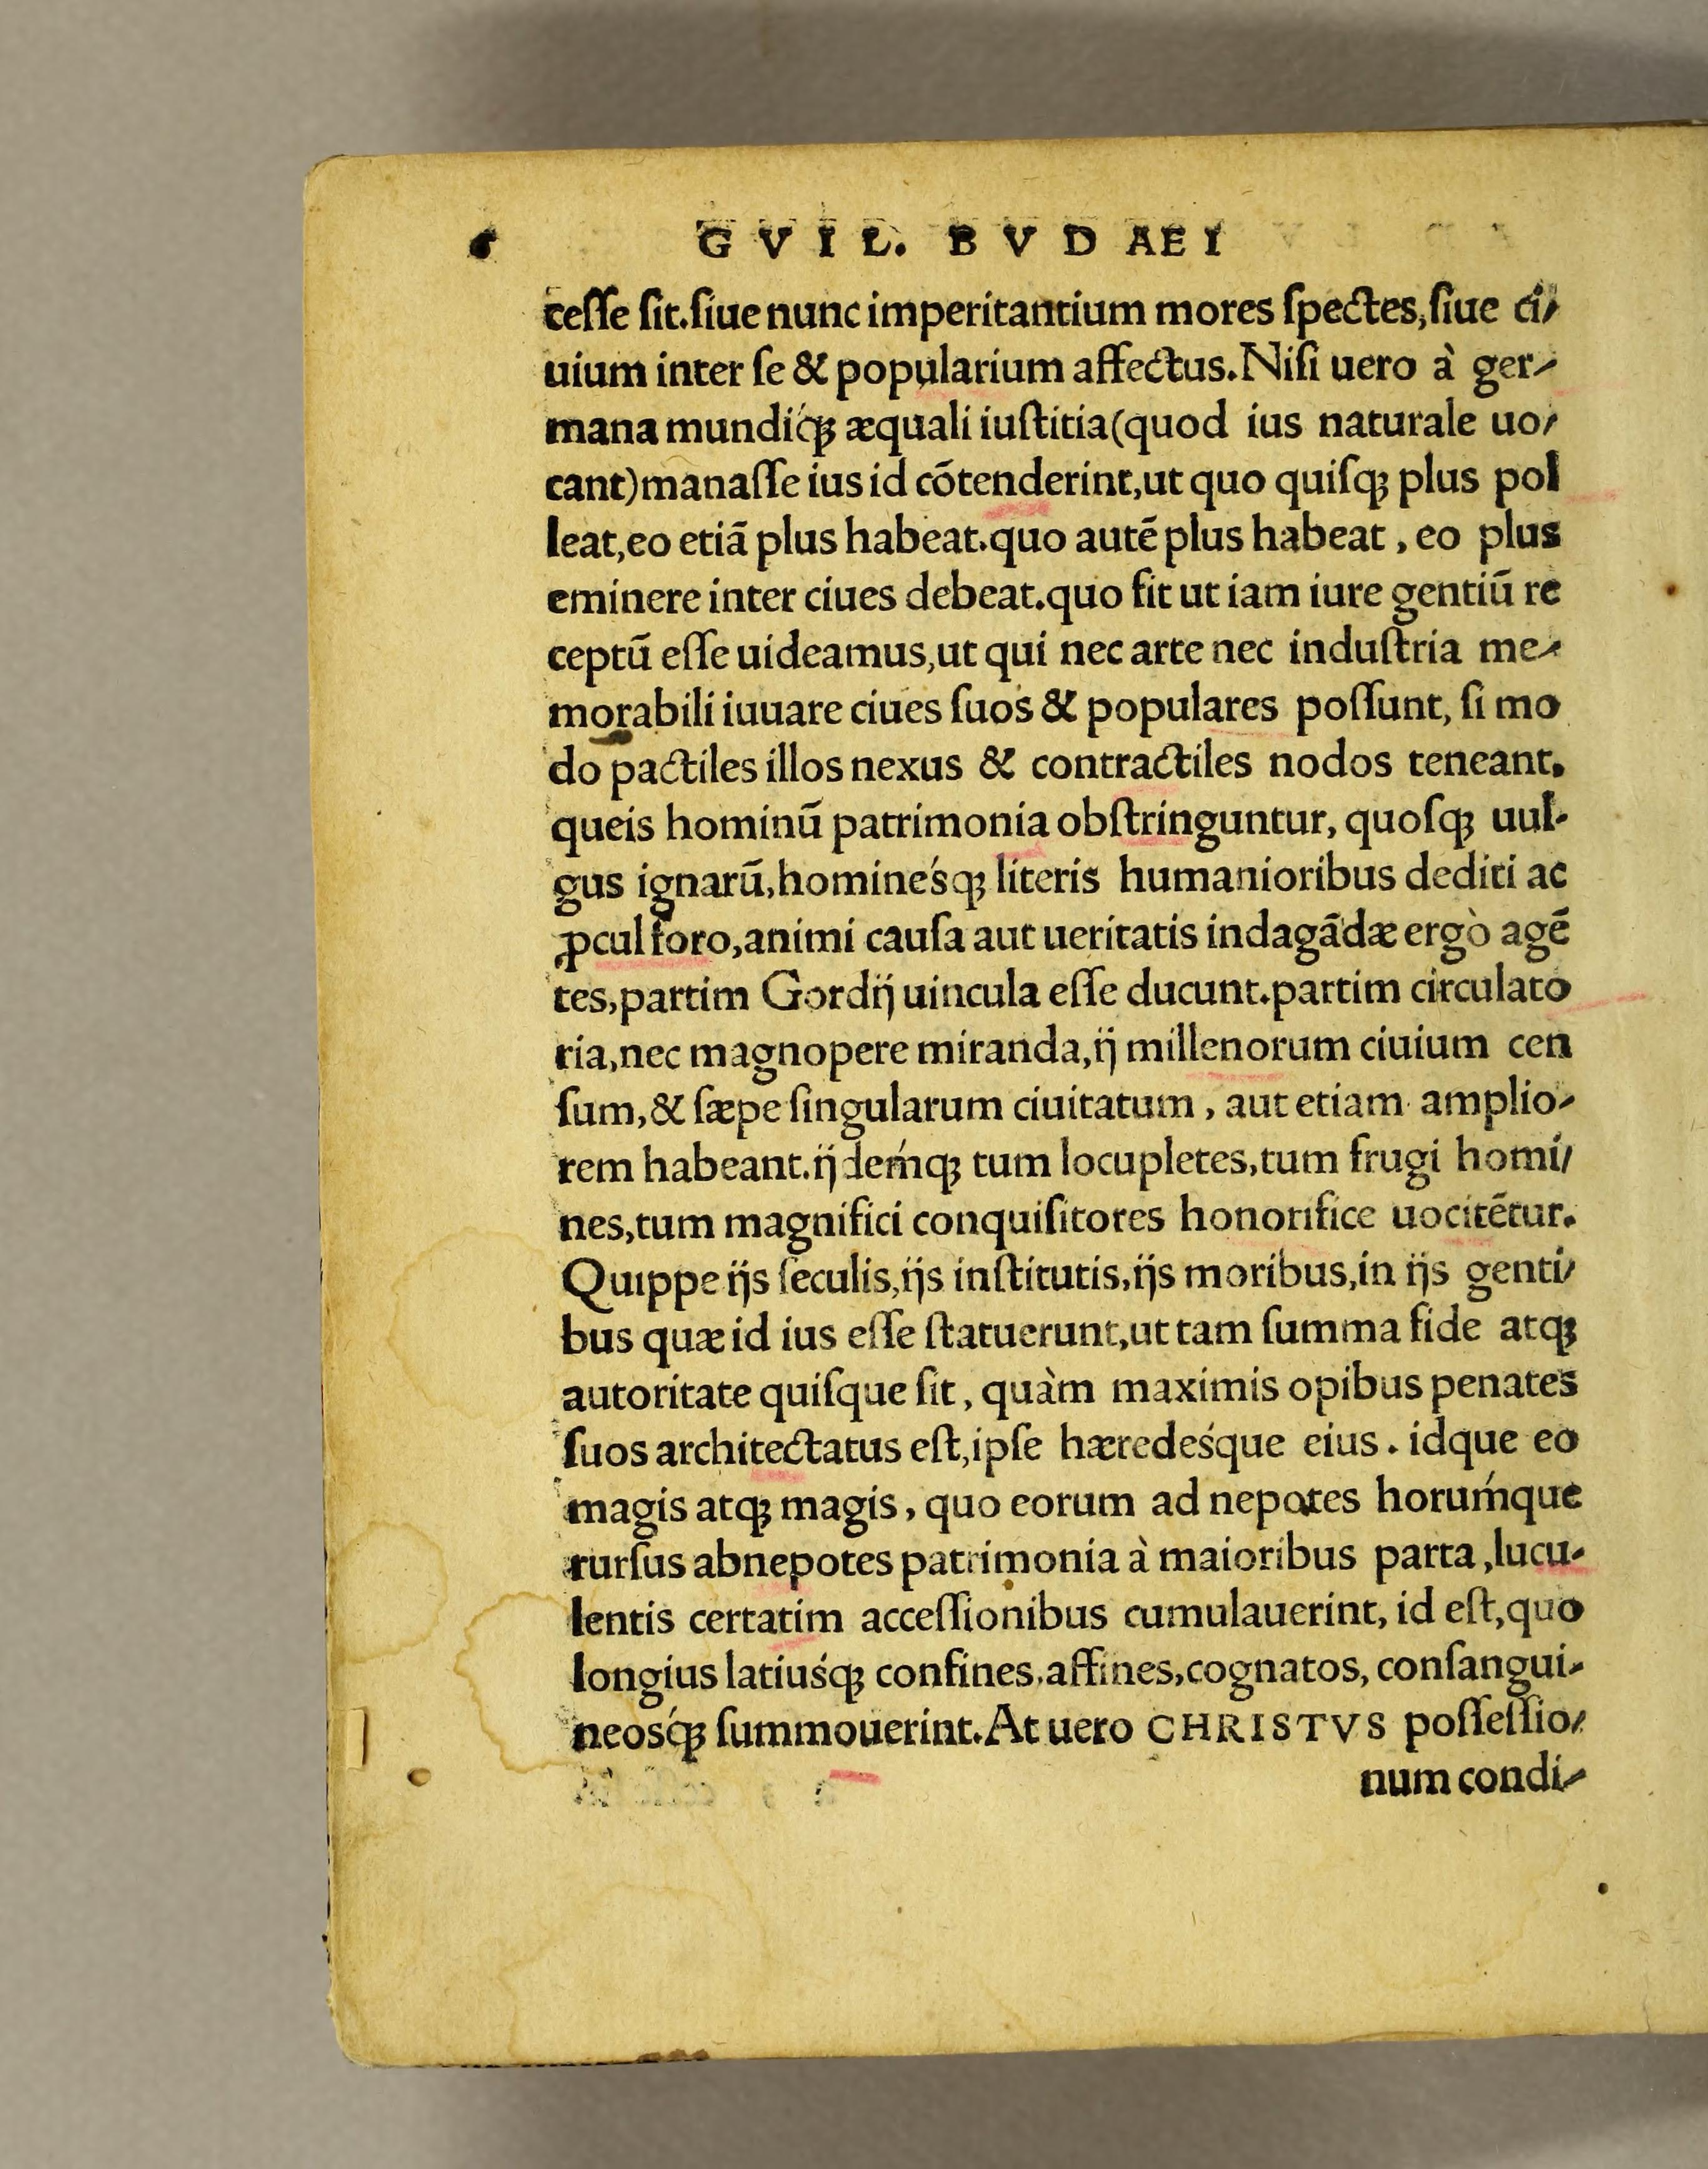 6 GVIL. BVDAEI
ceſſe ſit.ſiue nunc imperitantium mores ſpectes,ſiue ci-
uium inter ſe & popularium affectus.Niſi uero à ger-
mana mundiq́ꝫ æquali iuſtitia(quod ius naturale uo-
cant)manaſſe ius id cōtenderint,ut quo quiſqꝫ plus pol
leat,eo etiā plus habeat.quo autē plus habeat , eo plus
eminere inter ciues debeat.quo fit ut iam iure gentiū re
ceptū eſſe uideamus,ut qui nec arte nec induſtria me-
morabili iuuare ciues ſuos & populares poſſunt, ſi mo
do pactiles illos nexus & contractiles nodos teneant,
queis hominū patrimonia obſtringuntur, quoſqꝫ uul-
gus ignarū,homineśqꝫ literis humanioribus dediti ac
ꝓcul foro,animi cauſa aut ueritatis indagādæ ergò agē
tes,partim Gordij uincula eſſe ducunt.partim circulato
ria,nec magnopere miranda,ij millenorum ciuium cen
ſum,& ſæpe ſingularum ciuitatum , aut etiam amplio-
rem habeant.ijdeḿqꝫ tum locupletes,tum frugi homi-
nes,tum magnifici conquiſitores honorifice uocitētur.
Quippe ijs ſeculis,ijs inſtitutis,ijs moribus,in ijs genti-
bus quæ id ius eſſe ſtatuerunt,ut tam ſumma fide atqꝫ
autoritate quiſque ſit , quàm maximis opibus penates
ſuos architectatus eſt,ipſe hæredeśque eius . idque eo
magis atqꝫ magis , quo eorum ad nepotes horuḿque
rurſus abnepotes patrimonia à maioribus parta ,lucu-
lentis certatim acceſſionibus cumulauerint, id eſt,quo
longius latiuśqꝫ confines,affines,cognatos, conſangui-
neosq́ꝫ ſummouerint.At uero CHRISTVS poſſeſſio-
num condi-